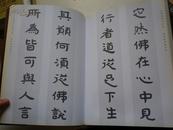 定然佛在心中見
行者道從足下生
具願何須從佛說
所為皆可與人言